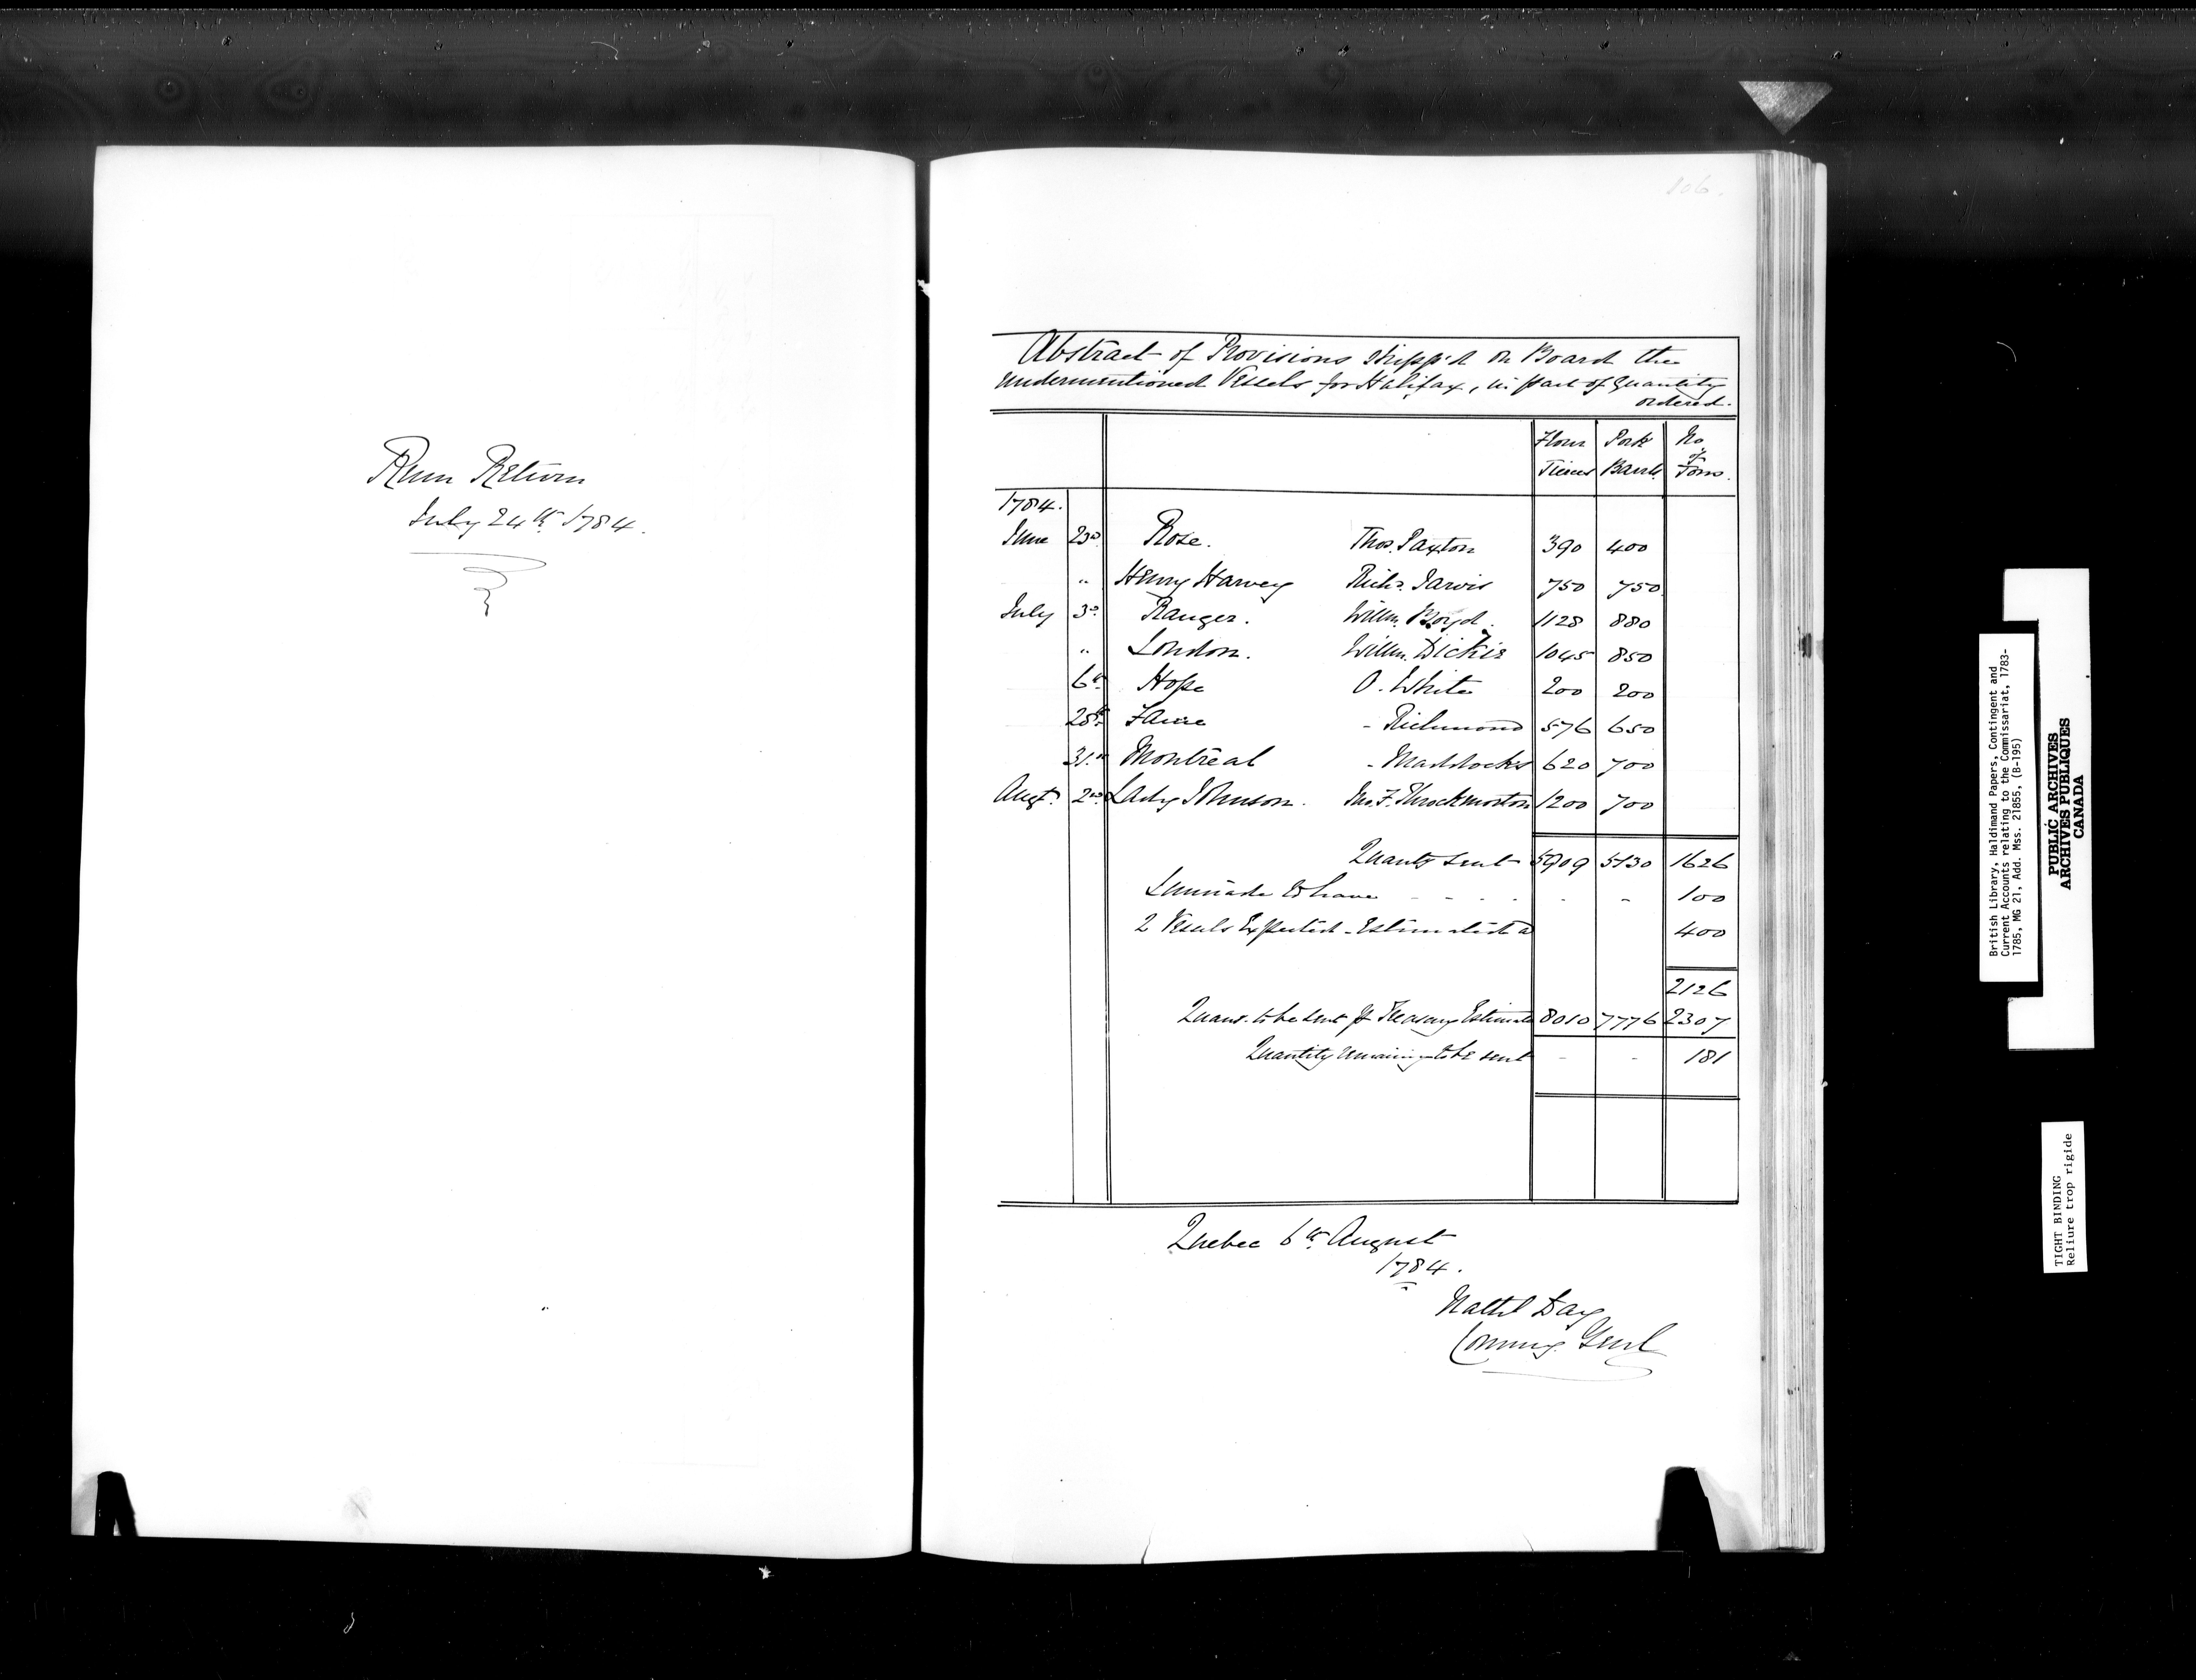 Rum Return
July 24th 1784.
106.
Abstract of Provisions shipp'd on Board the
undermentioned Vessels for Halifax, in part of Quantity
ordered.
Flour Tierces Pork Barrls. No of Tons.
1784.
June 23d. Rose. Thos. Paxton 390 400
" Henry Harvey Richd. Jarvis 750 750
July 3d. Ranger. Willm. Boyd. 1128 880
" London. Willm. Dickie 1045 850
6th. Hope O. White 200 200
28th. - Richmond 576 650
31.st Montreal - Maddocks 620 700
Augt. 2nd. Lady Johnson. Jno. F. Throckmorton 1200 700
Quanty sent 5909 5130 1626
- - - - - - 100
2 Vessels Expected - Estimated a 400
2126
Quany. to be sent pr Treasury Estimate 8010 7776 2307
Quantity remaining to be sent - - 181
Quebec 6th. August
1784.
Nathl Day
Commy. Genl
British Library, Haldimand Papers, Contingent and
Current Accounts relating to the Commissariat, 1783-
1785, MG 21, Add. Mss. 21855, (B-195)
PUBLIC ARCHIVES
ARCHIVES PUBLIQUES
CANADA
TIGHT BINDING
Reliure trop rigide